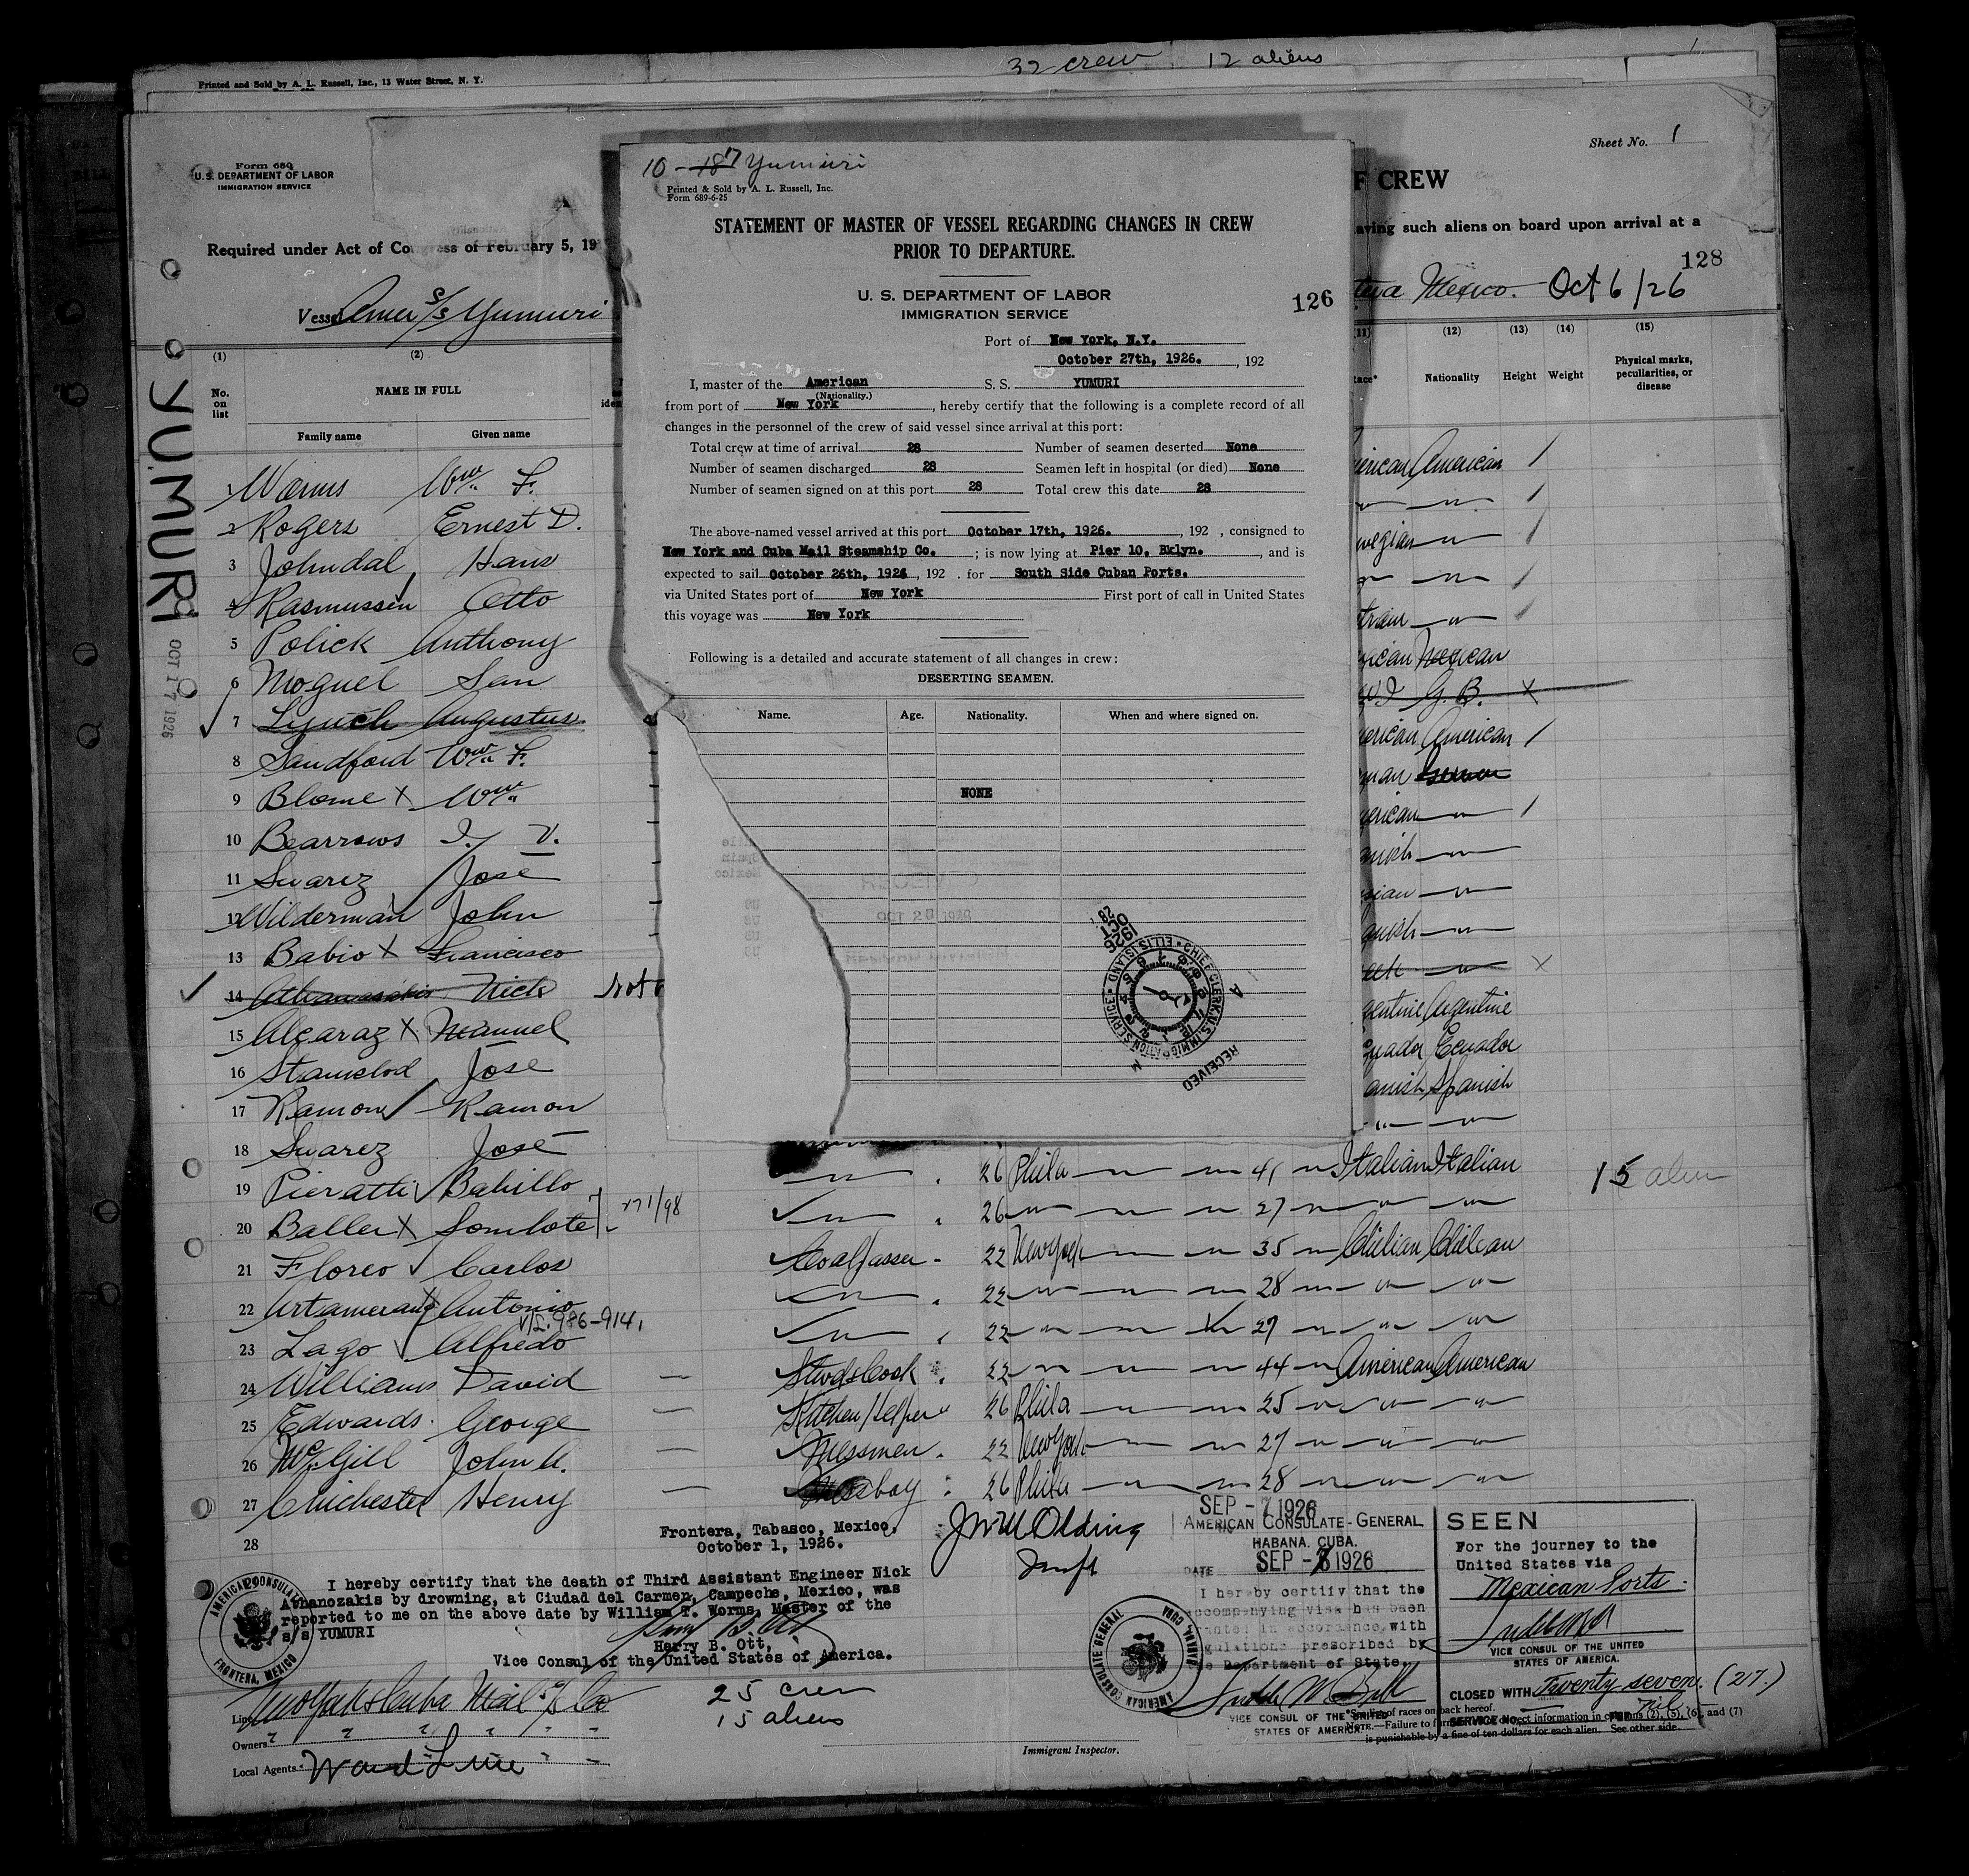 32 crew 12 aliens
Printed and Sold by A. L. Russell, Inc., 13 Water Street, N. Y.
Form 680
U.S. DEPARTMENT OF LABOR
IMMIGRATION SERVICE
Sheet No. 1
F CREW
Required under Act of Congress of February 5, 19
aving such aliens on board upon arrival at a
128
Vessel Amer S/S Yumuri
Mexico. Oct 6/26
(1) (2) (11) (12) (13) (14) (15)
No. on list
NAME IN FULL
Family name Given name
Nationality Height Weight Physical marks, peculiarities, or disease
YUMURI
OCT 17 1926
10-187 Yumuri
Printed & Sold by A. L. Russell, Inc.
Form 689-6-25
STATEMENT OF MASTER OF VESSEL REGARDING CHANGES IN CREW
PRIOR TO DEPARTURE.
U. S. DEPARTMENT OF LABOR
IMMIGRATION SERVICE
126
Port of New York, N.Y.
October 27th, 1926. , 192
I, master of the American S. S. YUMURI
(Nationality.)
from port of New York , hereby certify that the following is a complete record of all
changes in the personnel of the crew of said vessel since arrival at this port:
Total crew at time of arrival 28 Number of seamen deserted None
Number of seamen discharged 28 Seamen left in hospital (or died) None
Number of seamen signed on at this port 28 Total crew this date 28
The above-named vessel arrived at this port October 17th, 1926. , 192 , consigned to
New York and Cuba Mail Steamship Co. ; is now lying at Pier 10, Bklyn. , and is
expected to sail October 26th, 1926 , 192 . for South Side Cuban Ports.
via United States port of New York First port of call in United States
this voyage was New York
Following is a detailed and accurate statement of all changes in crew:
DESERTING SEAMEN.
Name. Age. Nationality. When and where signed on.
NONE
RECEIVED
CHIEF CLERK, U.S. IMMIGRATION SERVICE • ELLIS ISLAND
1926 OCT 28
1 Worms Wm F. American American /
2 Rogers Ernest D. /
3 Johndal Hans /
4 Rasmussen Otto /
5 Polick Anthony /
6 Moguel San Mexican
7 Lynch Augustus G. B. X
8 Sandford Wm F. American /
9 Blome X Wm
10 Bearrows I. V. /
11 Suarez José
12 Wilderman John
13 Babio X Francisco
14 Nick Not X
15 Alcaraz X Manuel Argentine
16 Stamelod José Ecuador
17 Ramon Ramon Spanish
18 Suarez José
19 Pieratti Bahillo 26 Phila 41 Italian Italian
15 alien
20 Baller X Somlote 26 27
21 Floreo Carlos Coal Passer 22 New York 35 Chilian Chilean
22 Antonio 22 28
23 Lago Alfredo 22 27
24 Williams David Stwd & Cook 22 44 American American
25 Edwards George Kitchen Helper 26 Phila 25
26 McGill John A. Messmen 22 New York 27
27 Chichester Henry Messboy 26 Phila 28
28
Frontera, Tabasco, Mexico,
October 1, 1926.
I hereby certify that the death of Third Assistant Engineer Nick
Athanozakis by drowning, at Ciudad del Carmen, Campeche, Mexico, was
reported to me on the above date by William T. Worms, Master of the
s/s YUMURI
Harry B. Ott,
Vice Consul of the United States of America.
AMERICAN CONSULATE
FRONTERA, MEXICO
SEP - 7 1926
AMERICAN CONSULATE-GENERAL
HABANA, CUBA.
DATE SEP - 7 1926
I hereby certify that the
accompanying visa has been
granted in accordance with
regulations prescribed by
the Department of State.
VICE CONSUL OF THE UNITED
STATES OF AMERICA
AMERICAN CONSULATE GENERAL
HABANA, CUBA
SEEN
For the journey to the
United States via
Mexican Ports.
VICE CONSUL OF THE UNITED
STATES OF AMERICA.
CLOSED WITH Twenty seven. (27.)
SERVICE NO. FEE nil
Line New York & Cuba Mail SS Co
Owners " " " " " "
Local Agents Ward Line
25 crew
15 aliens
Immigrant Inspector.
*See list of races on back hereof.
NOTE.—Failure to furnish correct information in columns (2), (5), (6), and (7)
is punishable by a fine of ten dollars for each alien. See other side.